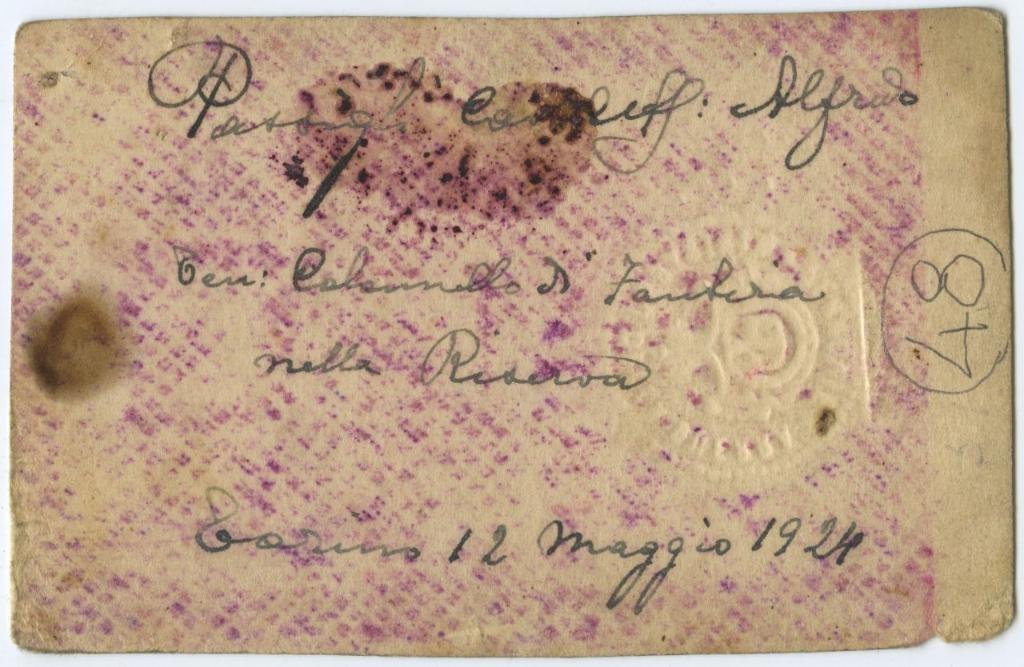 Cav. Uff: Alfredo
Ten: Colonnello di Fanteria
nella Riserva
Torino 12 Maggio 1924
48